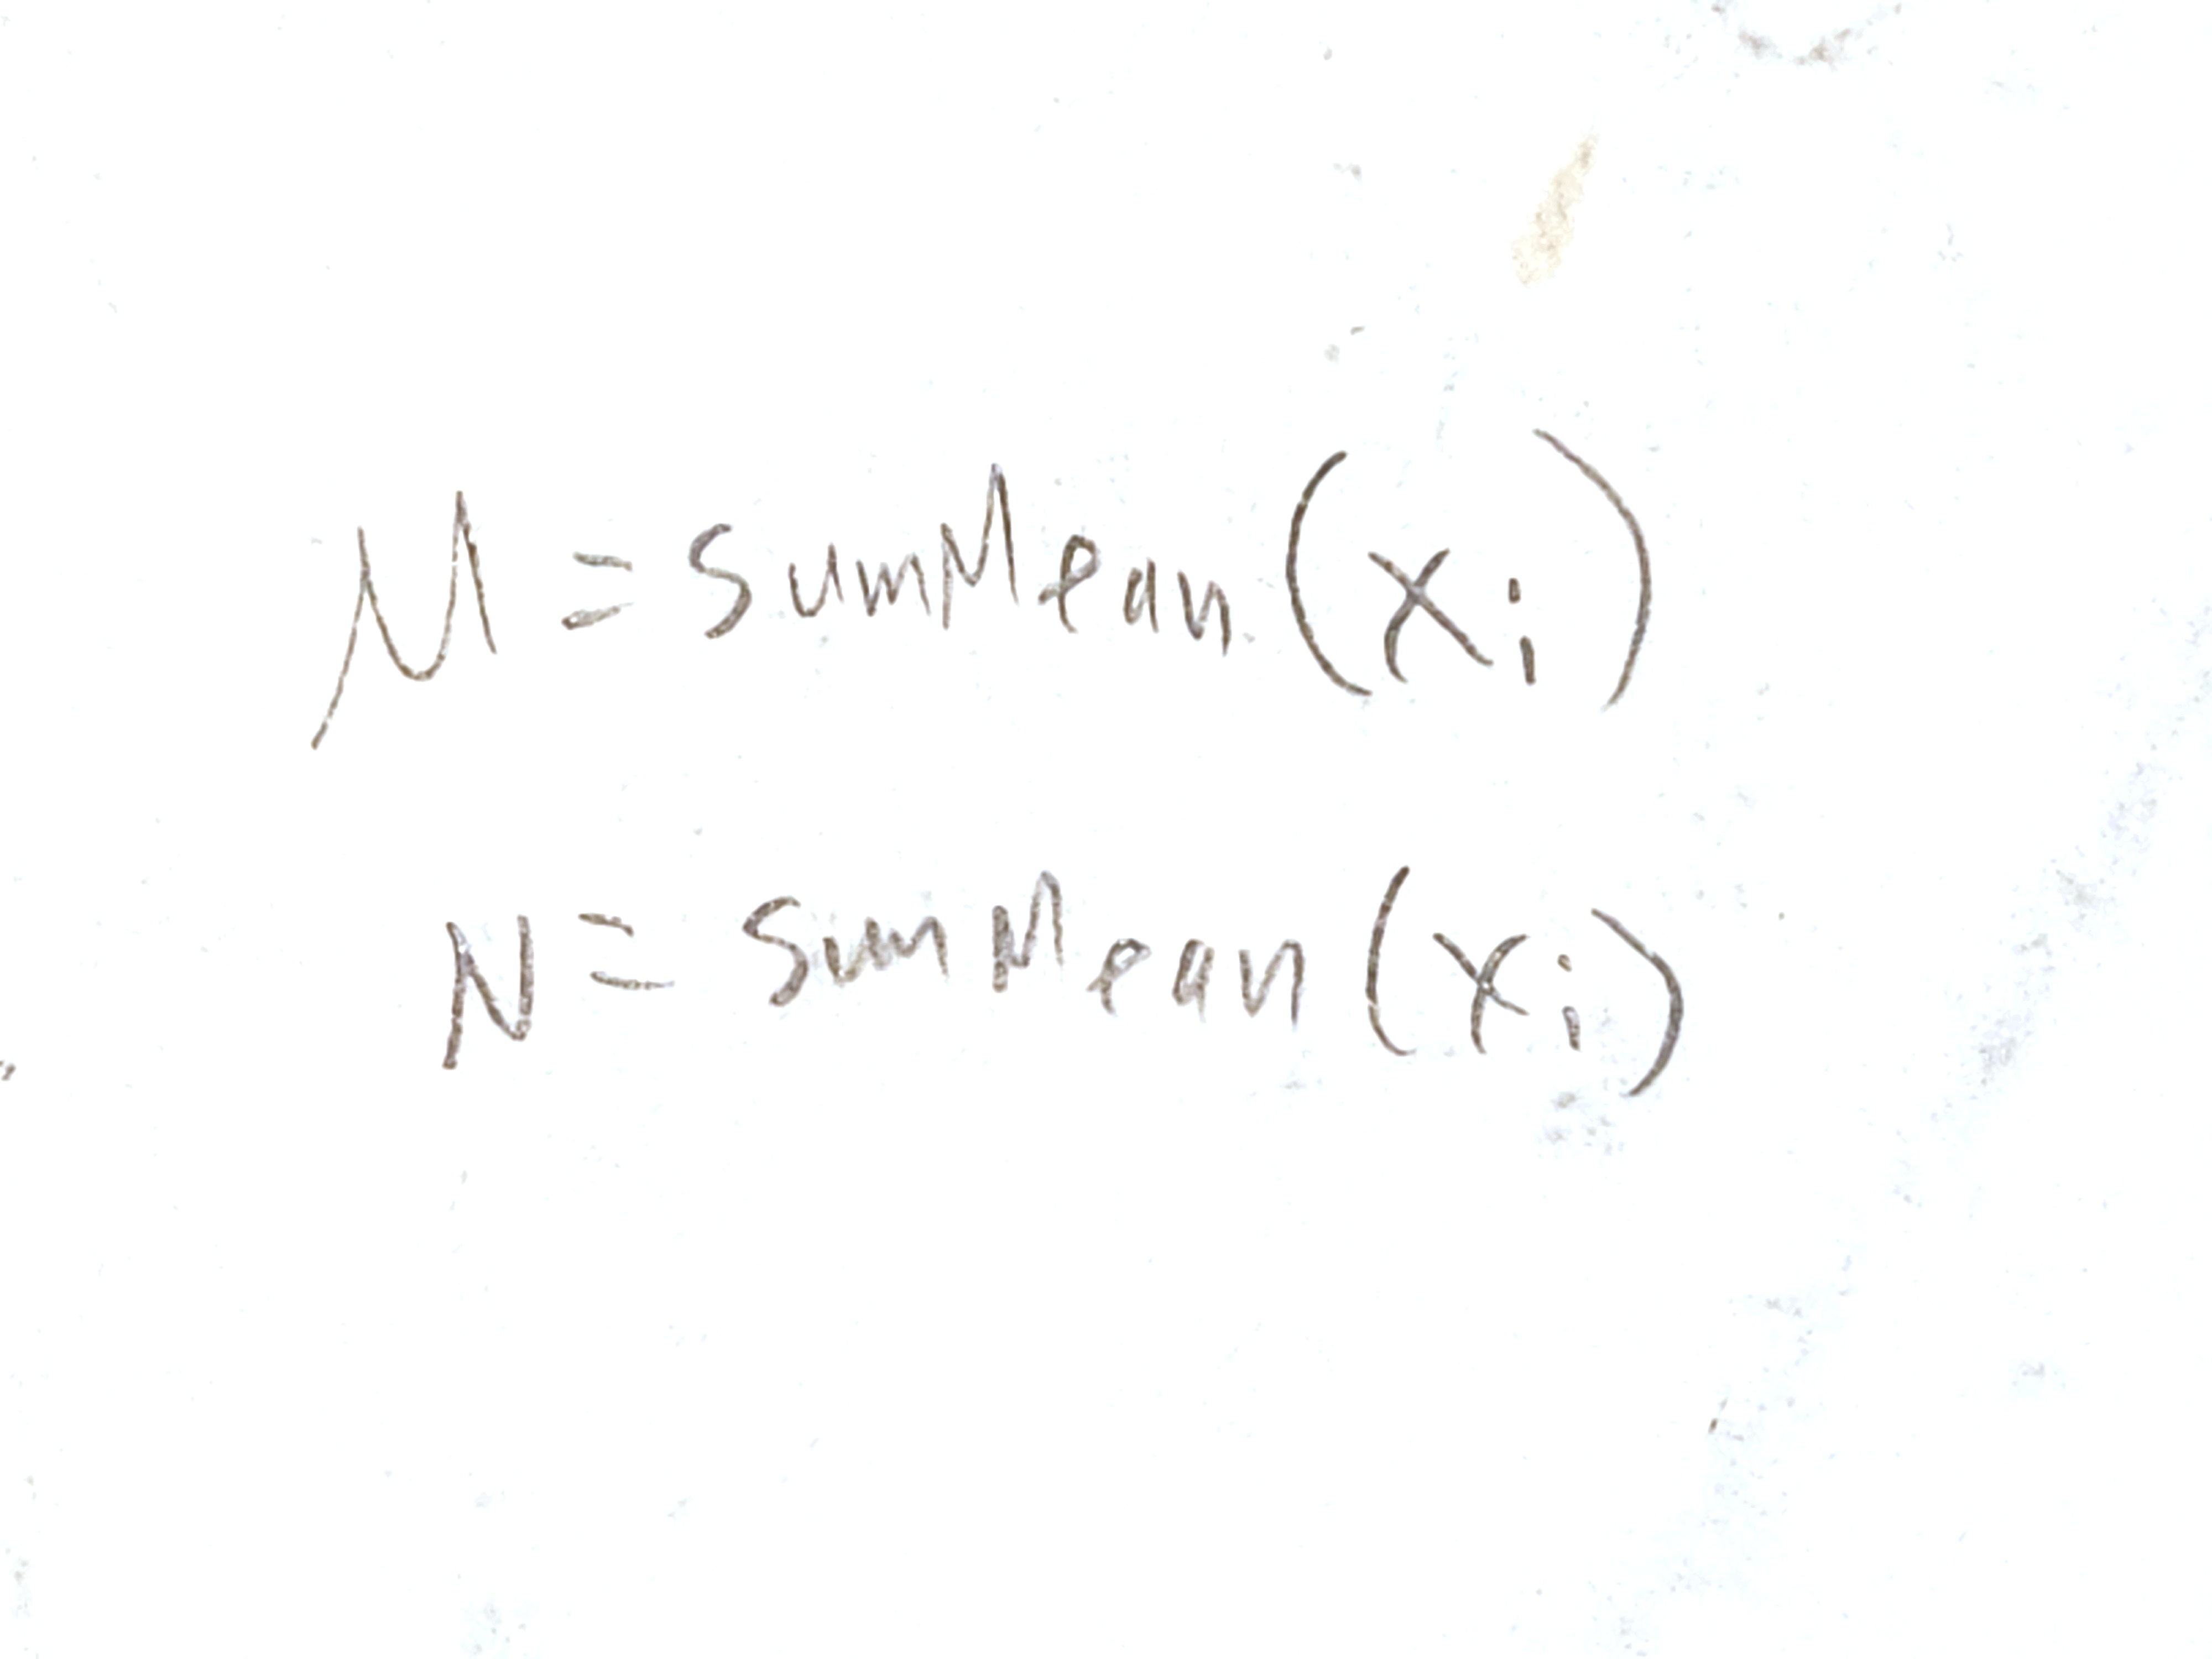 μ = sumMean (xi)
N = sumMean (xi)